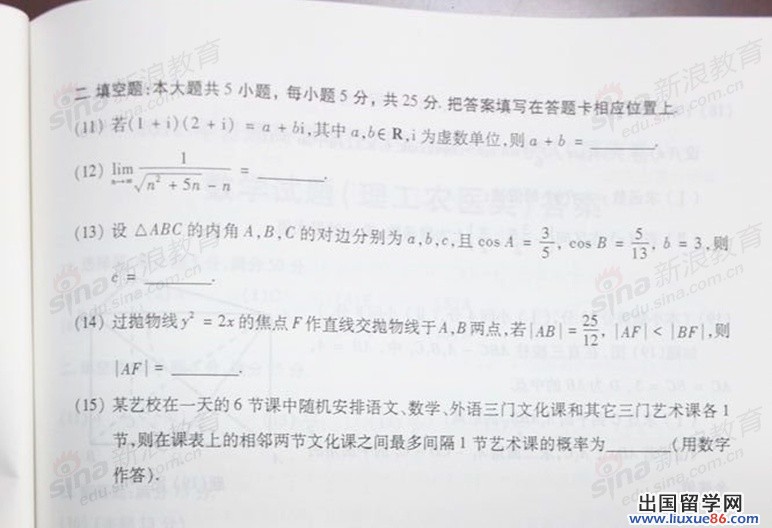 二 填空题:本大题共5小题，每小题5分，共25分.把答案填写在答题卡相应位置上.
(11) 若(1 + i)(2 + i) = a + bi,其中 a,b∈ R,i 为虚数单位,则 a + b = ______.
(12) lim n→∞ 1/(√(n² + 5n) - n) = ______.
(13) 设 △ABC 的内角 A,B,C 的对边分别为 a,b,c,且 cos A = 3/5, cos B = 5/13, b = 3,则
c = ______.
(14) 过抛物线 y² = 2x 的焦点 F 作直线交抛物线于 A,B 两点,若 |AB| = 25/12, |AF| < |BF|,则
|AF| = ______.
(15) 某艺校在一天的6节课中随机安排语文、数学、外语三门文化课和其它三门艺术课各1
节,则在课表上的相邻两节文化课之间最多间隔1节艺术课的概率为______(用数字
作答).
sina 新浪教育
edu.sina.com.cn
出国留学网
www.liuxue86.com